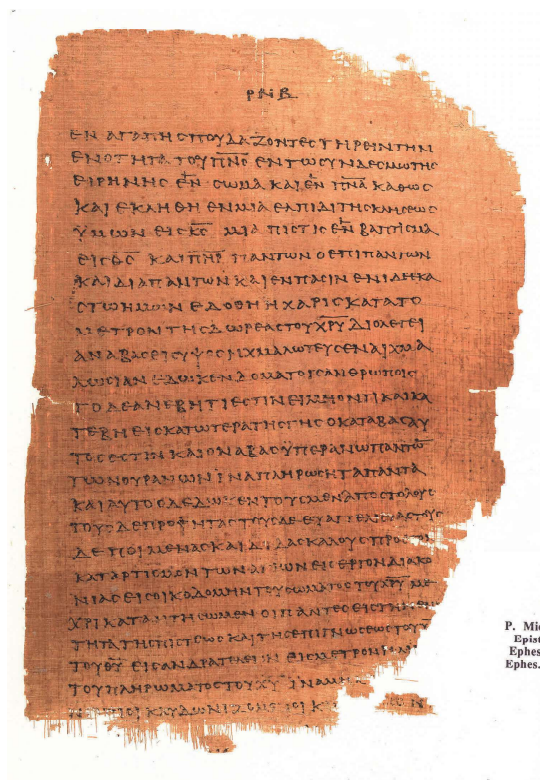 ΡΝΒ
ΕΝ ΑΓΑΠΗ ΣΠΟΥΔΑΖΟΝΤΕΣ ΤΗΡΕΙΝ ΤΗΝ
ΕΝΟΤΗΤΑ ΤΟΥ ΠΝ̅Σ̅ ΕΝ ΤΩ ΣΥΝΔΕΣΜΩ ΤΗΣ
ΕΙΡΗΝΗΣ ΕΝ ΣΩΜΑ ΚΑΙ ΕΝ ΠΝ̅Α̅ ΚΑΘΩΣ
ΚΑΙ ΕΚΛΗΘΗ ΕΝ ΜΙΑ ΕΛΠΙΔΙ ΤΗΣ ΚΛΗΣΕΩΣ
ΫΜΩΝ ΕΙΣ Κ̅Σ̅ ΜΙΑ ΠΙΣΤΙΣ ΕΝ ΒΑΠΤΙΣΜΑ
ΕΙΣ Θ̅Σ̅ ΚΑΙ ΠΗ̅Ρ̅ ΠΑΝΤΩΝ Ο ΕΠΙ ΠΑΝΤΩΝ
ΚΑΙ ΔΙΑ ΠΑΝΤΩΝ ΚΑΙ ΕΝ ΠΑΣΙΝ ΕΝΙ ΔΕ ΕΚΑ
ΣΤΩ ΗΜΩΝ ΕΔΟΘΗ Η ΧΑΡΙΣ ΚΑΤΑ ΤΟ
ΜΕΤΡΟΝ ΤΗΣ ΔΩΡΕΑΣ ΤΟΥ Χ̅Ρ̅Υ̅ ΔΙΟ ΛΕΓΕΙ
ΑΝΑΒΑΣ ΕΙΣ ΥΨΟΣ ΗΧΜΑΛΩΤΕΥΣΕΝ ΑΙΧΜΑ
ΛΩΣΙΑΝ ΕΔΩΚΕΝ ΔΟΜΑΤΑ ΤΟΙΣ ΑΝΘΡΩΠΟΙΣ
ΤΟ ΔΕ ΑΝΕΒΗ ΤΙ ΕΣΤΙΝ ΕΙ ΜΗ ΟΤΙ ΚΑΙ ΚΑ
ΤΕΒΗ ΕΙΣ ΚΑΤΩΤΕΡΑ ΤΗΣ ΓΗΣ Ο ΚΑΤΑΒΑΣ ΑΥ
ΤΟΣ ΕΣΤΙΝ ΚΑΙ Ο ΝΑΒΑΣ ΫΠΕΡΑΝΩ ΠΑΝΤΩ̅
ΤΩΝ ΟΥΡΑΝΩΝ ΪΝΑ ΠΛΗΡΩΣΗ ΤΑ ΠΑΝΤΑ
ΚΑΙ ΑΥΤΟΣ ΔΕΔΩΚΕΝ ΤΟΥΣ ΜΕΝ ΑΠΟΣΤΟΛΟΥΣ
ΤΟΥΣ ΔΕ ΠΡΟΦΗΤΑΣ ΤΟΥΣ ΔΕ ΕΥΑΓΓΕΛΙΣΤΑΣ ΤΟΥΣ
ΔΕ ΠΟΙΜΕΝΑΣ ΚΑΙ ΔΙΔΑΣΚΑΛΟΥΣ ΠΡΟΣ ΤΟΝ
ΚΑΤΑΡΤΙΣΜΟΝ ΤΩΝ ΑΓΙΩΝ ΕΙΣ ΕΡΓΟΝ ΔΙΑΚΟ
ΝΙΑΣ ΕΙΣ ΟΙΚΟΔΟΜΗΝ ΤΟΥ ΣΩΜΑΤΟΣ ΤΟΥ Χ̅Ρ̅Υ̅ ΜΕ
ΧΡΙ ΚΑΤΑΝΤΗΣΩΜΕΝ ΟΙ ΠΑΝΤΕΣ ΕΙΣ ΤΗΝ ΕΝΟ
ΤΗΤΑ ΤΗΣ ΠΙΣΤΕΩΣ ΚΑΙ ΤΗΣ ΕΠΙΓΝΩΣΕΩΣ ΤΟΥ
ΤΟΥ Θ̅Υ̅ ΕΙΣ ΑΝΔΡΑ ΤΕΛΕΙΟΝ ΕΙΣ ΜΕΤΡΟΝ
ΤΟΥ ΠΛΗΡΩΜΑΤΟΣ ΤΟΥ Χ̅Υ̅ ΪΝΑ
ΚΛΥΔΩΝΙΖΟΜΕΝΟΙ
P. Mic
Epist
Ephes
Ephes.